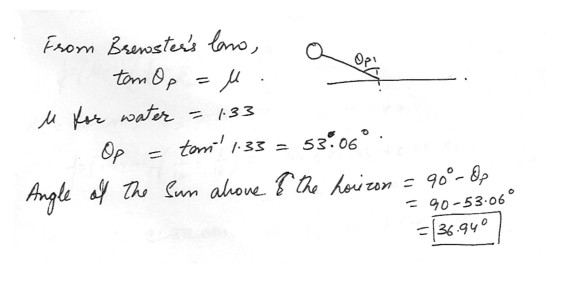 From Brewster's law,
θp
tan θp = μ .
μ for water = 1.33
θp = tan⁻¹ 1.33 = 53.06° .
Angle of the Sun above the horizon = 90° - θp
= 90 - 53.06°
= 36.94°